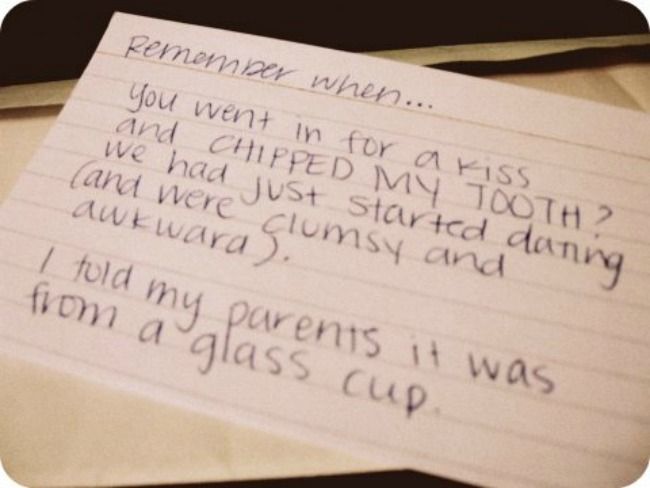 Remember when...
you went in for a kiss
and CHIPPED MY TOOTH?
we had just started dating
(and were clumsy and
awkward).
I told my parents it was
from a glass cup.